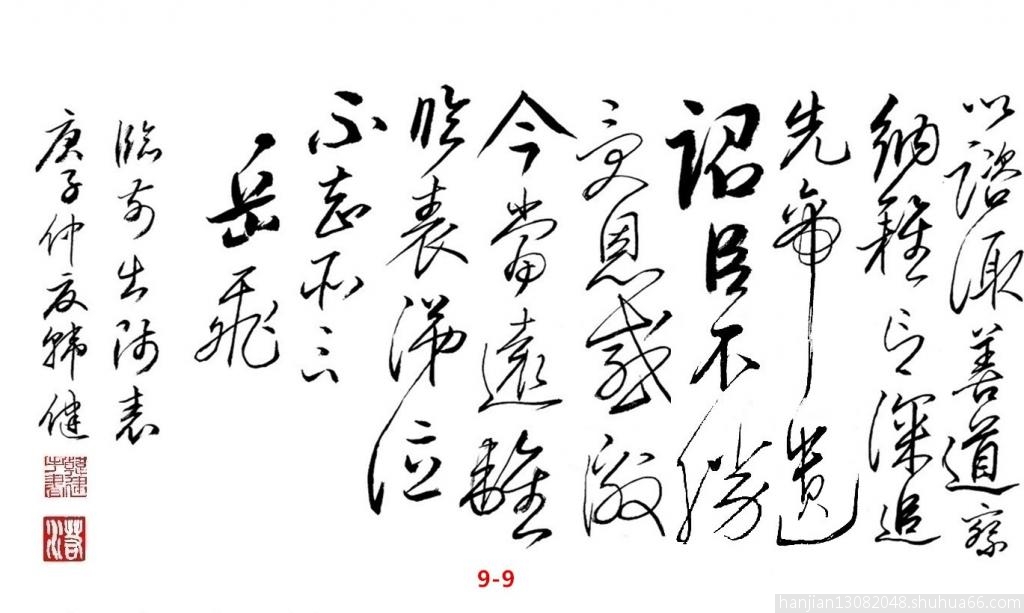 以諮諏善道察
納雅言深追
先帝遺
詔臣不勝
受恩感激
今當遠離
臨表涕泣
不知所云
岳飛
臨前出師表
庚子仲夏韓健
韓健手書
9-9
hanjian13082048.shuhua66.com